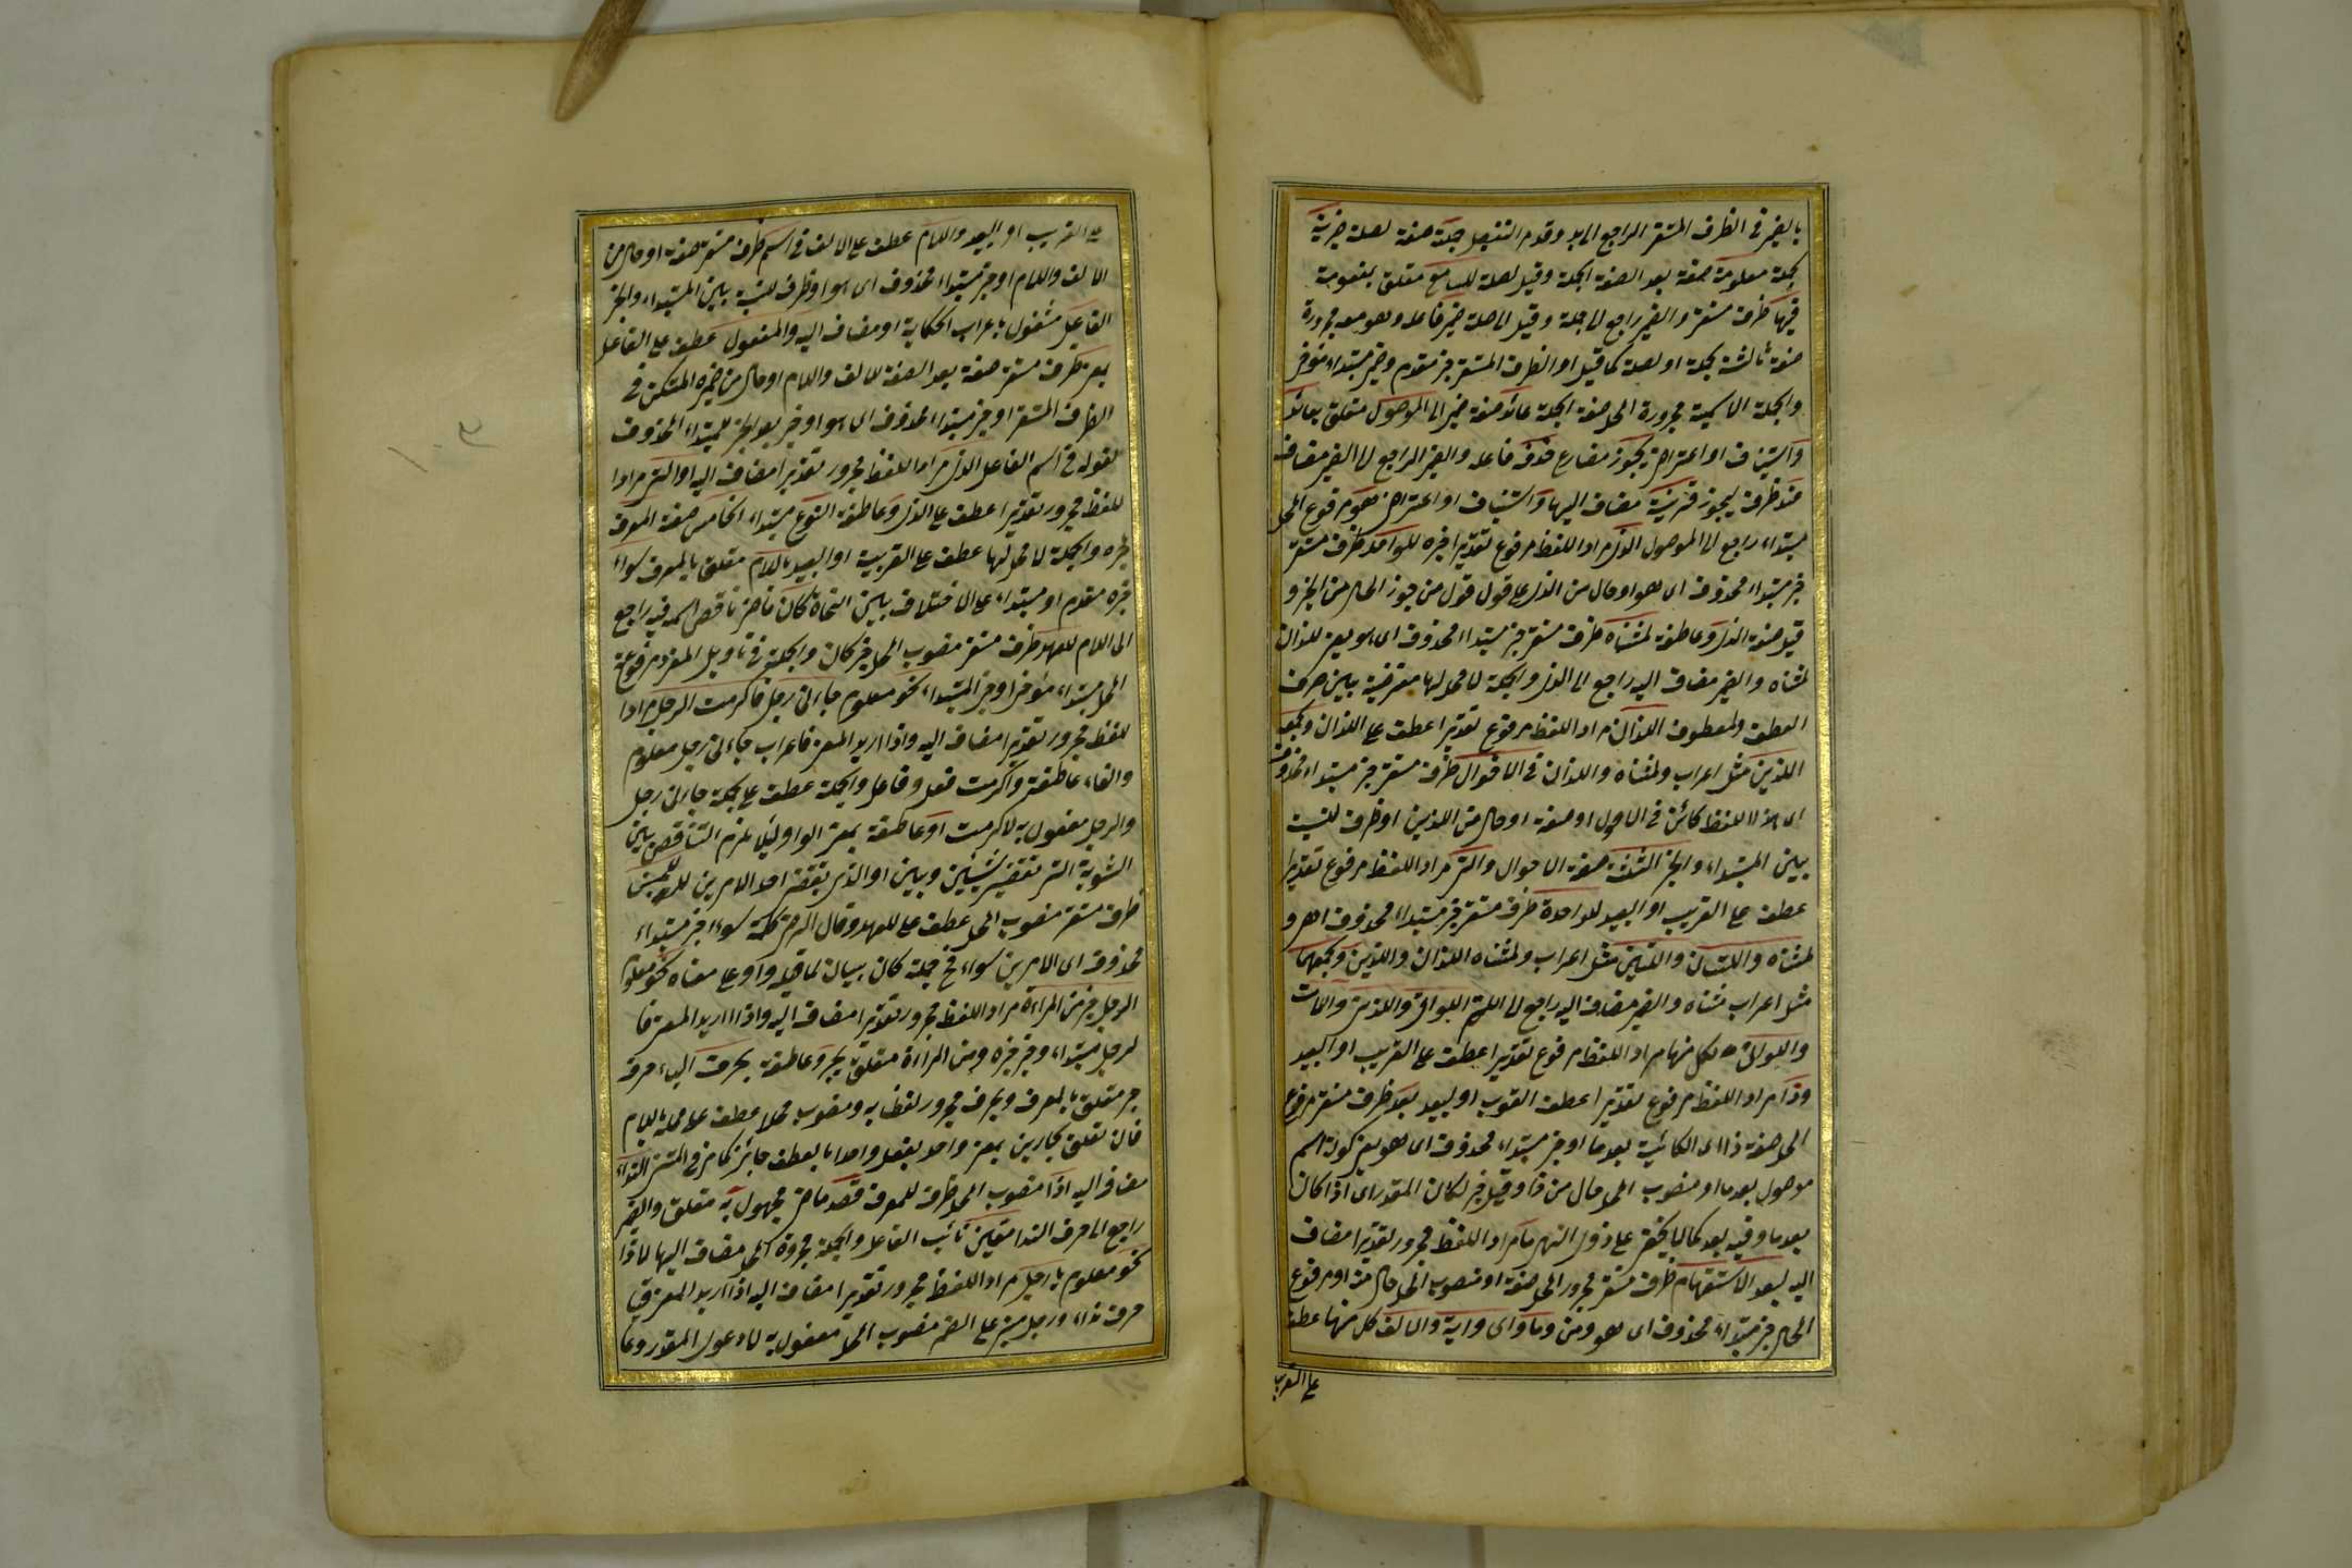 بالضمير في الظرف المستقر الراجع الى يد وقدم التفصيل جملة صفة لصلة خبرية
بجملة معلومة صفة بعد الصفة الجملة وقيل لصلة للسامع متعلق بمعلومة
فيها ظرف مستقر والضمير راجع الى جملة وقيل الى صلة ضمير فاعله وهو معه مجرورة
صفة ثالثة بجملة او لصلة كما قيل او الظرف المستقر خبر مقدم وضمير مبتداء مؤخر
والجملة الاسمية مجرورة المحل صفة الجملة عائد صفة ضمير الى الموصول متعلق بعائد
واستيناف او اعتراض يجوز مضارع حذفه فاعله والضمير الراجع الى الضمير مضاف
عند ظرف ليجوز قرينة مضاف اليها واستيناف او اعتراض هو مرفوع المحل
مبتداء راجع الى الموصول الذى مراد اللفظ مرفوع تقديرا خبره للواحد ظرف مستقر
خبر مبتداء محذوف اى هو او حال من الذى على قول من جوز الحال من الخبر و
قيل صفة الذى وعاطفة لمثناه ظرف مستقر خبر مبتداء محذوف اى هو يعنى اللذان
لمثناه والضمير مضاف اليه راجع الى الذى والجملة لا محل لها معترضة بين حرف
العطف والمعطوف اللذان مراد اللفظ مرفوع تقديرا عطف على اللذان وبجمعه
اللذين مثل اعراب ولمثناه واللذان في الاقوال ظرف مستقر خبر مبتداء محذوف
اى هذا اللفظ كائن في الاحوال او صفة او حال من اللذين او ظرف للنسبة
بين المبتداء والخبر الثلثة صفة الاحوال والتى مراد اللفظ مرفوع تقديرا
عطف على القريب او البعيد للواحدة ظرف مستقر خبر مبتداء محذوف اى هو و
لمثناه واللتان واللتين مثل اعراب ولمثناه اللذان واللذين وبجمعهما
مثل اعراب مثناه والضمير مضاف اليه راجع الى التى اللواتى واللائى واللات
واللواتى كل منها مراد اللفظ مرفوع تقديرا عطف على القريب او البعيد
وذا مراد اللفظ مرفوع تقديرا عطف القريب او البعيد بعد ظرف مستقر مرفوع
المحل صفة ذا اى الكائنة بعد ما او خبر مبتداء محذوف اى هو يعنى كونه اسم
موصول بعد ما او منصوب المحل حال من ذا وقيل خبر لكان المقدر اى اذا كان
بعد ما وفيه بعد كما لا يخفى على ذوى النهى ما مراد اللفظ مجرور تقديرا مضاف
اليه لبعد الاستفهام ظرف مستقر مجرور المحل صفة او منصوب المحل حال منه او مرفوع
المحل خبر مبتداء محذوف اى هو ومن وما واى واية والالف كل منها عطف
على القريب
على القريب او البعيد واللام عطف على الالف في اسم ظرف مستقر صفة او حال من
الالف واللام او خبر مبتداء محذوف اى هو او ظرف للنسبة بين المبتداء والخبر
الفاعل مشغول باعراب الحكاية او مضاف اليه والمفعول عطف على الفاعل
بمعنى ظرف مستقر صفة بعد الصفة للالف واللام او حال من ضميره المستكن في
الظرف المستقر او خبر مبتداء محذوف اى هو او خبر بعد الخبر للمبتداء المحذوف
لقوله في اسم الفاعل الذى مراد اللفظ مجرور تقديرا مضاف اليه او التى مرادا
للفظ مجرور تقديرا عطف على الذى وعاطفة النوع مبتداء الخامس صفة المعرف
خبره والجملة لا محل لها عطف على القريبة او البعيد باللام متعلق بالمعرف سواء
خبره مقدم او مبتداء على الاختلاف بين النحاة كان ماض ناقص اسمه فيه راجع
الى اللام للعهد ظرف مستقر منصوب المحل خبر كان والجملة في تأويل المفرد مرفوعة
المحل مبتداء مؤخر او خبر المبتداء نحو معلوم جاءنى رجل فاكرمت الرجل مرادا
للفظ مجرور تقديرا مضاف اليه واذا اريد المعنى فاعراب جاءنى رجل معلوم
والفاء عاطفة واكرمت فعل وفاعل والجملة عطف على جملة جاءنى رجل
والرجل مفعول به لاكرمت او عاطفة بمعنى الواو لئلا يلزم التناقض بين
السوية التى تقتضى شيئين وبين او الذى يقتضى احد الامرين للجنس
ظرف مستقر منصوب المحل عطف على للعهد وقال الرضى كلمة سواء خبر مبتداء
محذوف اى الامرين سواء فح جملة كان بيان لما قبله واو على معناه نحو معلوم
الرجل خير من المراءة مراد اللفظ مجرور تقديرا مضاف اليه واذا اريد المعنى فا
لرجل مبتداء وخير خبره ومن المراءة متعلق بخير وعاطفة بحرف الباء حرف
جر متعلق بالمعرف وبحرف مجرور لفظا به ومنصوب محلا عطف على محله باللام
فان تعلق الجارين بمعنى واحد بفعل واحد بالعطف جائز كما مر في المتن النداء
مضاف اليه اذا منصوب المحل ظرف للمعرف قصد ماض مجهول به متعلق والضمير
راجع الى حرف الندا معين نائب الفاعل والجملة مجرورة المحل مضاف اليها لاذا
نحو معلوم يا رجل مراد اللفظ مجرور تقديرا مضاف اليه اذا اريد المعنى فيا
حرف نداء ورجل مبنى على الضم منصوب المحل مفعول به لادعو المقدر وعا
١٠٣